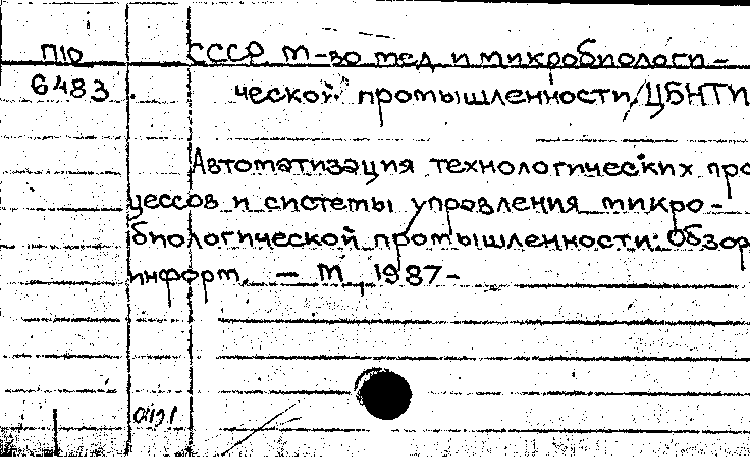 П10
6483.
СССР м-во мед и микробиологи-
ческой промышленности, ЦБНТИ
Автоматизация технологических про
цессов и системы управления микро-
биологической промышленности: Обзор
информ. - М, 1987-